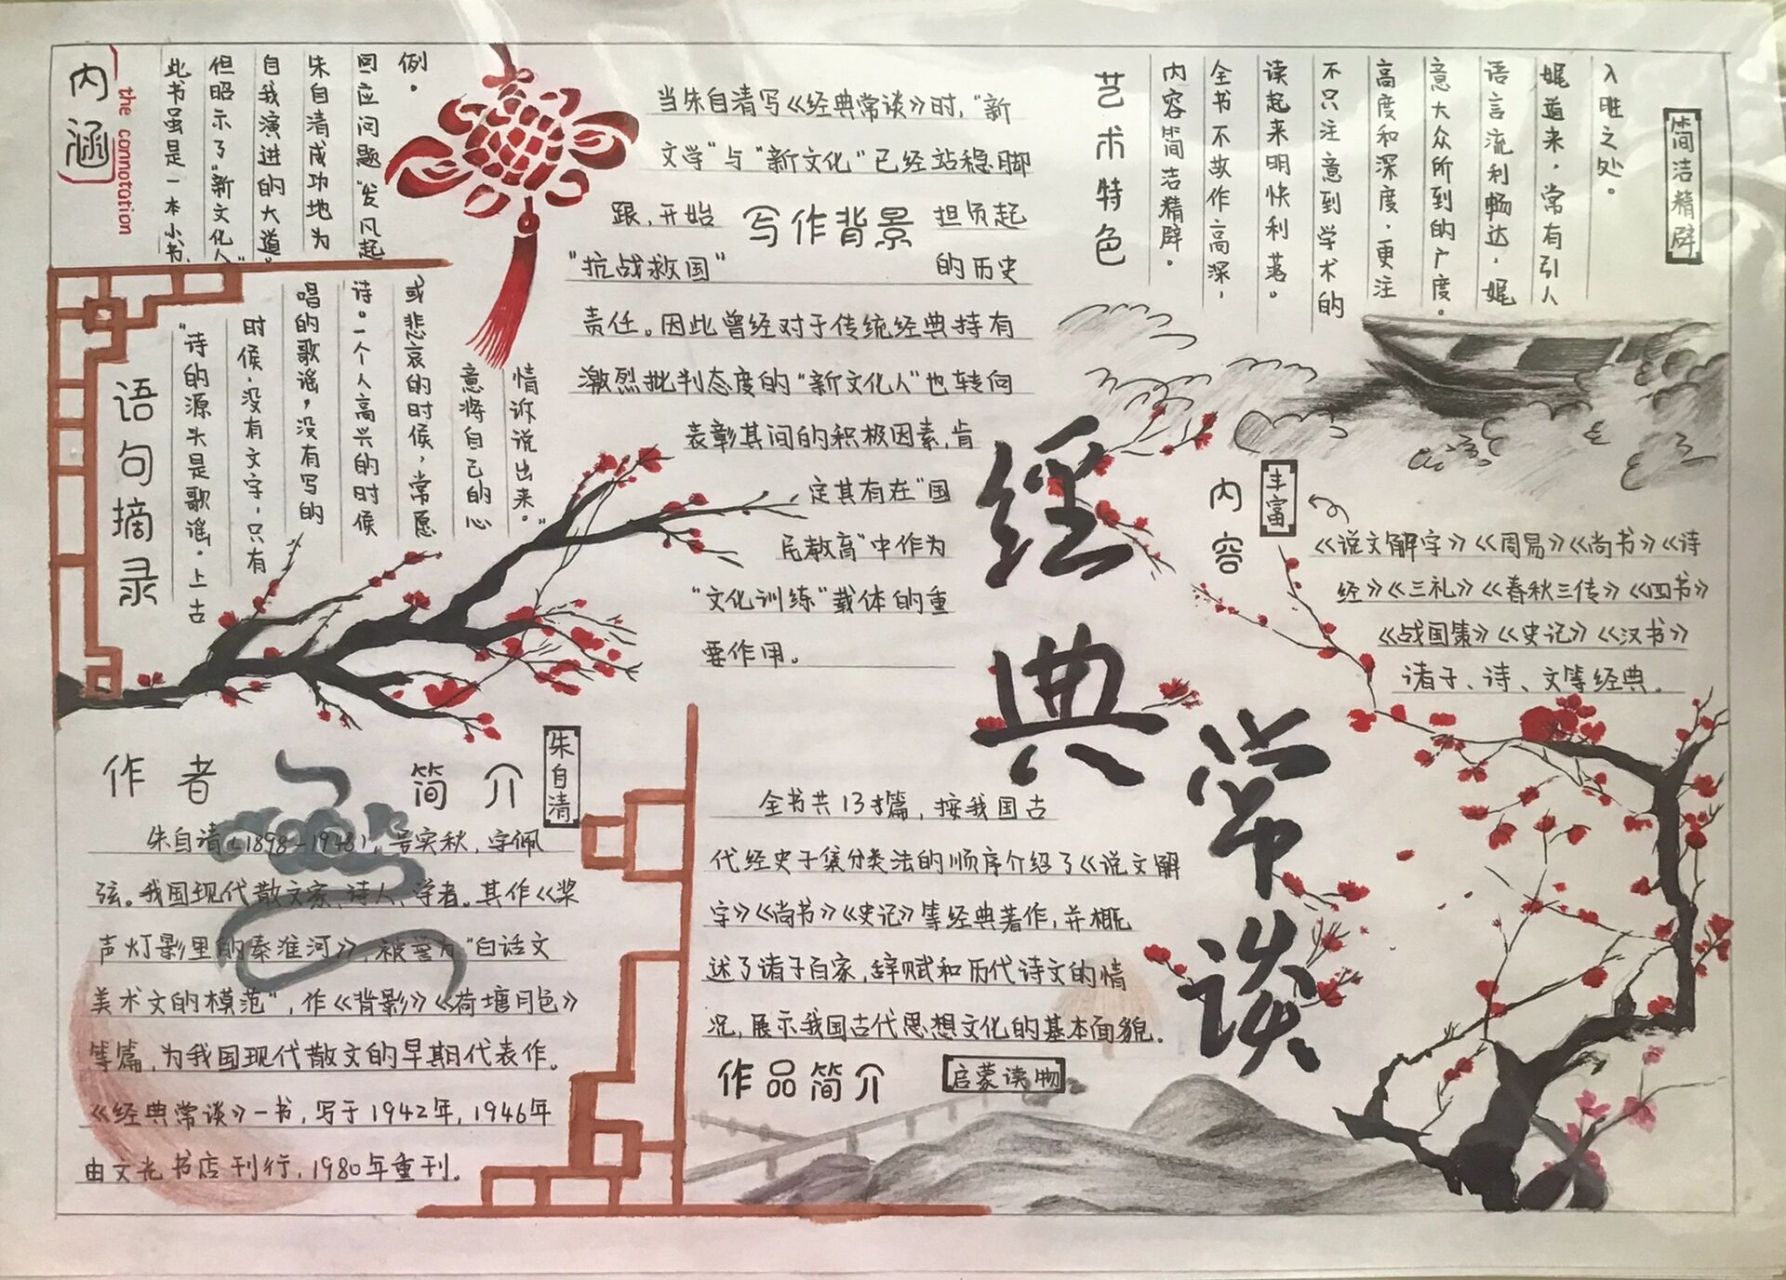 内涵
the connotation
此书虽是一本小书，
但昭示了“新文化人”
自我演进的大道。
朱自清成功地为
回应问题“发凡起
例。
当朱自清写《经典常谈》时，“新
文学”与“新文化”已经站稳脚
跟，开始
担负起
“抗战救国”
的历史
写作背景
责任。因此曾经对于传统经典持有
激烈批判态度的“新文化人”也转向
表彰其间的积极因素，肯
定其有在“国
民教育”中作为
“文化训练”载体的重
要作用。
艺术特色
简洁精辟
内容简洁精辟。
全书不故作高深，
读起来明快利落。
不只注意到学术的
高度和深度，更注
意大众所到的广度。
语言流利畅达，娓
娓道来，常有引人
入胜之处。
语句摘录
“诗的源头是歌谣。上古
时候，没有文字，只有
唱的歌谣，没有写的
诗。一个人高兴的时候
或悲哀的时候，常愿
意将自己的心
情诉说出来。”
内容
丰富
《说文解字》《周易》《尚书》《诗
经》《三礼》《春秋三传》《四书》
《战国策》《史记》《汉书》
诸子、诗、文等经典。
经典常谈
作者简介
朱自清
朱自清（1898-1948），号实秋，字佩
弦。我国现代散文家、诗人、学者。其作《桨
声灯影里的秦淮河》，被誉为“白话文
美术文的模范”，作《背影》《荷塘月色》
等篇，为我国现代散文的早期代表作。
《经典常谈》一书，写于1942年，1946年
由文光书店刊行，1980年重刊。
全书共13篇，按我国古
代经史子集分类法的顺序介绍了《说文解
字》《尚书》《史记》等经典著作，并概
述了诸子百家，辞赋和历代诗文的情
况，展示我国古代思想文化的基本面貌。
作品简介
启蒙读物